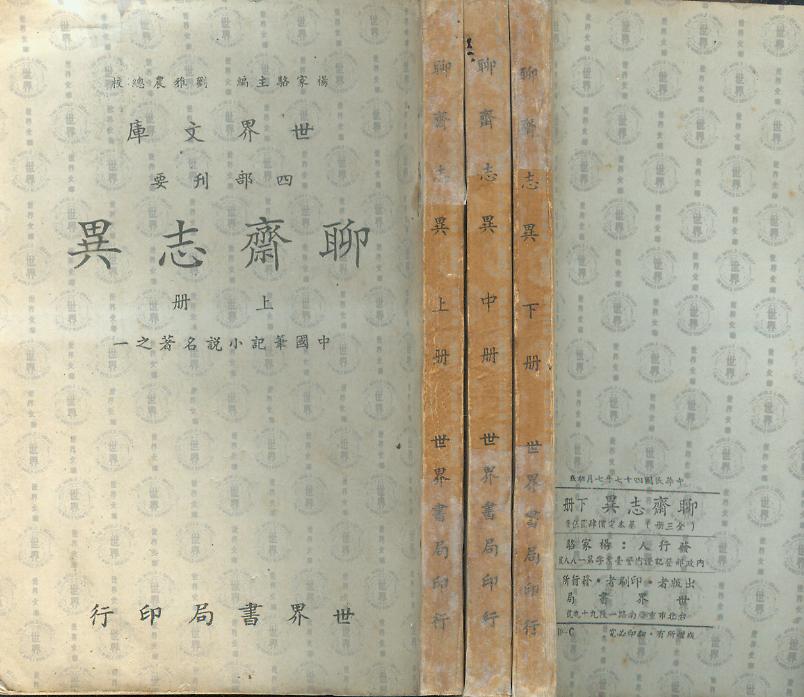 楊家駱主編 劉雅農總校
世界文庫
四部刊要
聊齋志異
上册
中國筆記小說名著之一
世界書局印行
聊齋志異 上册 世界書局印行
聊齋志異 中册 世界書局印行
聊齋志異 下册 世界書局印行
中華民國四十七年七月初版
聊齋志異 下册
(全三册)
發行人：楊家駱
出版者·印刷者·發行所
世界書局
台北市重慶南路一段九十九號
版權所有·翻印必究